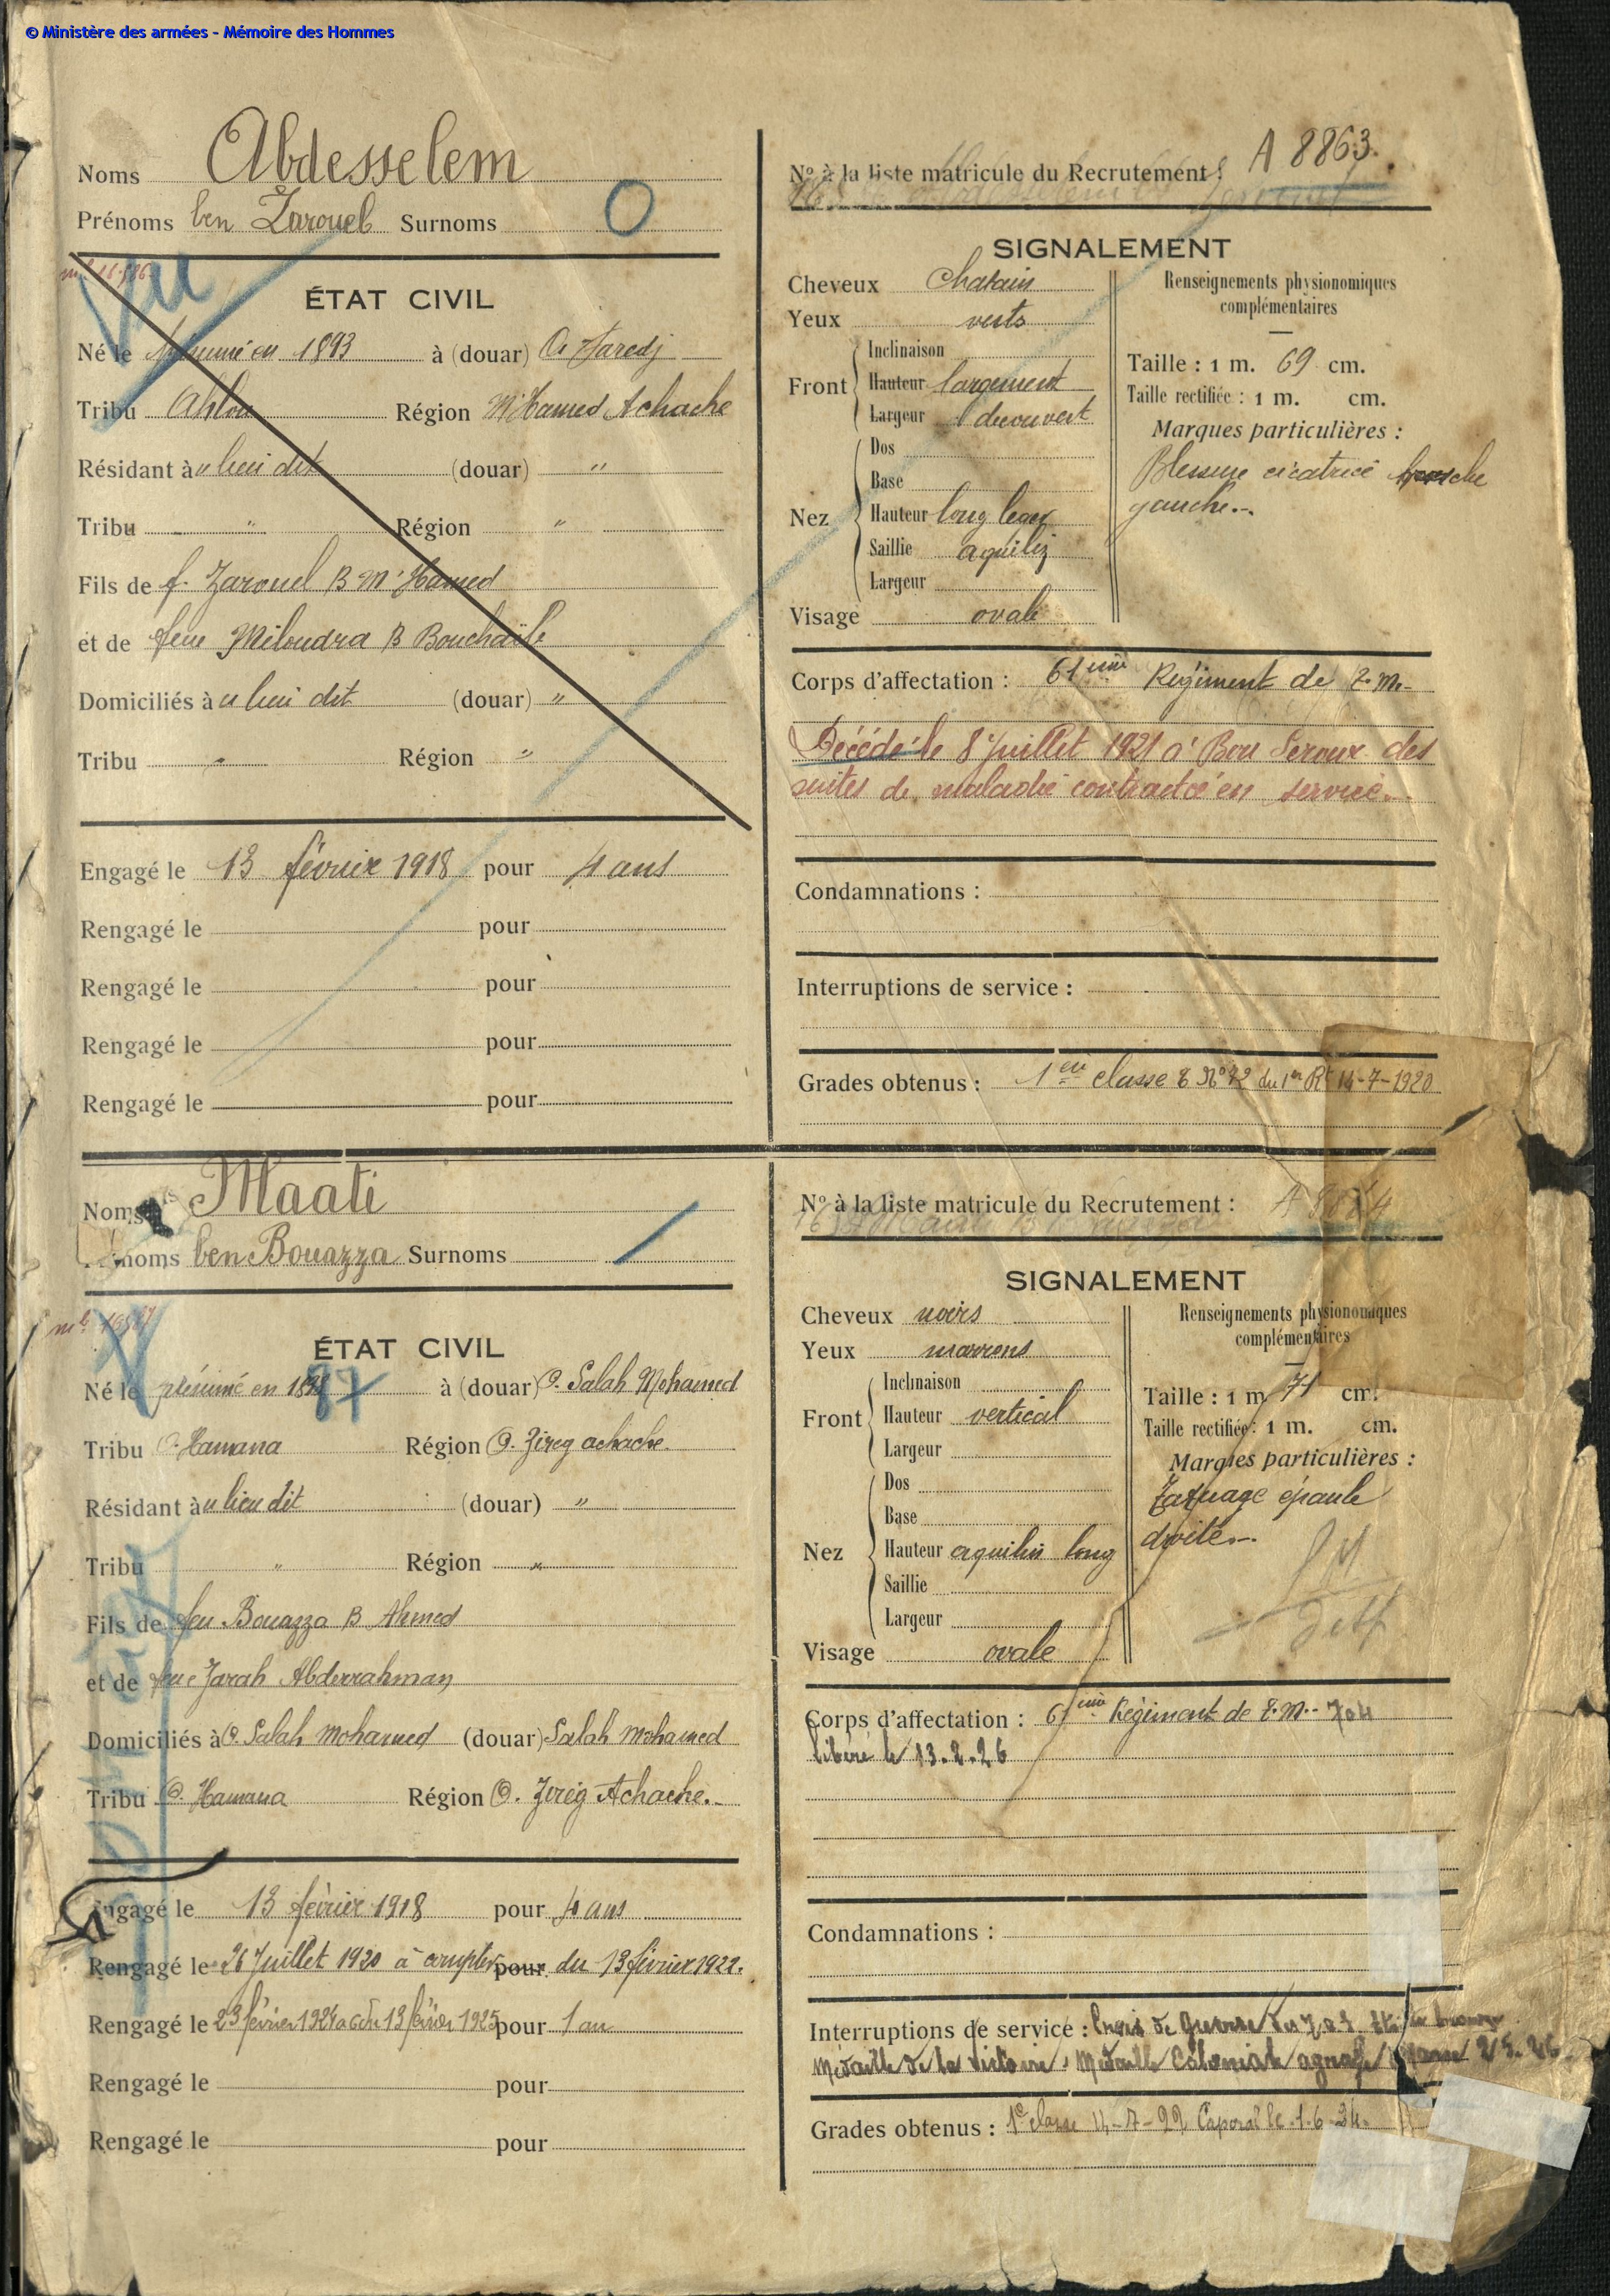 © Ministère des armées - Mémoire des Hommes
Noms Abdesselem
Prénoms ben Zarouel Surnoms O
Vu
ÉTAT CIVIL
Né le en 1893 à (douar) O. Jaredj
Tribu Ahlou Région M'Hamed Achache
Résidant àu lieu dit (douar) "
Tribu " Région "
Fils de f. Zarouel B M'Hamed
et de feue Miloudra B Bouchaïb
Domiciliés à u lieu dit (douar) "
Tribu " Région "
Engagé le 13 février 1918 pour 4 ans
Rengagé le pour
Rengagé le pour
Rengagé le pour
Rengagé le pour
N° à la liste matricule du Recrutement : A 8863.
SIGNALEMENT
Cheveux chatain
Yeux verts
Front
Inclinaison
Hauteur largement
Largeur decouvert
Nez
Dos
Base
Hauteur long
Saillie aquilin
Largeur
Visage ovale
Renseignements physionomiques
complémentaires
Taille : 1 m. 69 cm.
Taille rectifiée : 1 m. cm.
Marques particulières :
Blessure cicatrice
gauche.-
Corps d'affectation : 61ème Régiment de T.M.-
Décédé le 8 Juillet 1921 à Bou Seroux des
suites de maladie contractée en service.-
Condamnations :
Interruptions de service :
Grades obtenus : 1ère classe N° 72 du 1er Rt 14-7-1920
Noms Maati
noms ben Bouazza Surnoms /
ÉTAT CIVIL
Né le présumé en 1897 à (douar) O. Salah Mohamed
Tribu O. Hamana Région O. Zireg achache.
Résidant àu lieu dit (douar) "
Tribu " Région "
Fils de feu Bouazza B Ahmed
et de feue Zarah Abderrahman
Domiciliés à O. Salah Mohamed (douar) Salah Mohamed
Tribu O. Hamana Région O. Zireg Achache.-
gagé le 13 février 1918 pour 4 ans
Rengagé le 26 Juillet 1920 à compter pour du 13 février 1922.
Rengagé le 23 février 1924 a c du 13 février 1925 pour 1 an
Rengagé le pour
Rengagé le pour
N° à la liste matricule du Recrutement :
SIGNALEMENT
Cheveux noirs
Yeux marrons
Front
Inclinaison
Hauteur vertical
Largeur
Nez
Dos
Base
Hauteur aquilin long
Saillie
Largeur
Visage ovale
Renseignements physionomiques
complémentaires
Taille : 1 m 71 cm.
Taille rectifiée : 1 m. cm.
Marques particulières :
Tatouage épaule
droite.-
Corps d'affectation : 61ème Régiment de T.M.-
libéré le 13.2.26
Condamnations :
Interruptions de service : Croix de Guerre
Médaille de la Victoire, Médaille Coloniale agrafe
Grades obtenus : 1e classe 14-7-22 Caporal le 1.6.24.